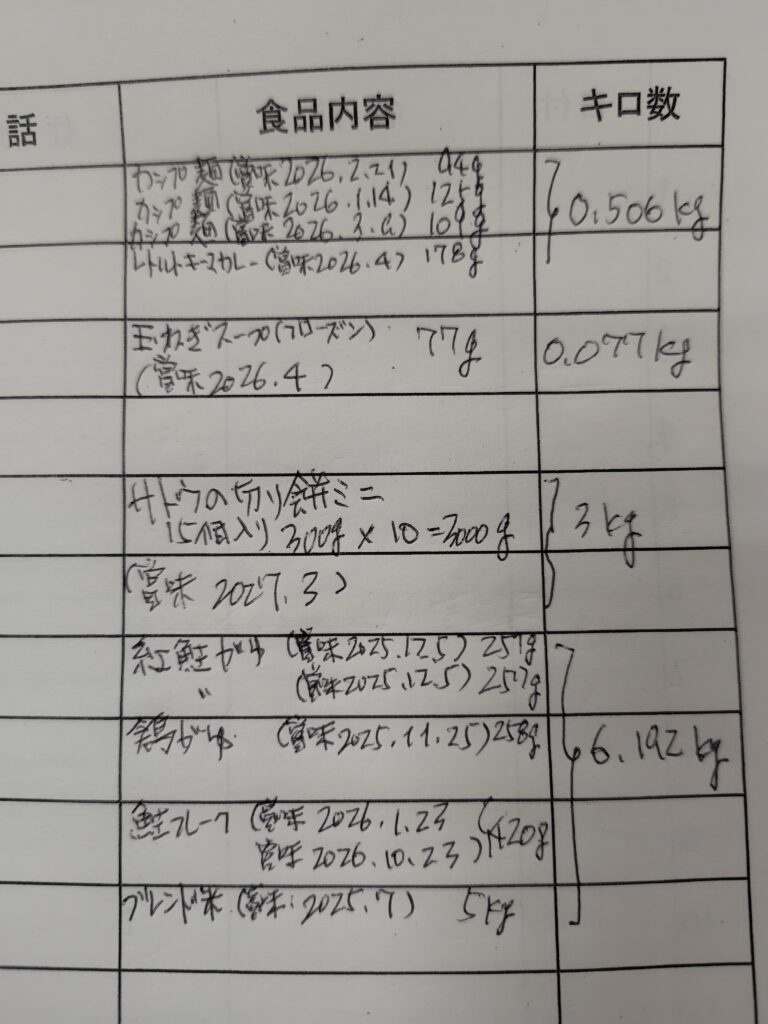 話 食品内容 キロ数
カップ麺(賞味2026.2.21) 94g
カップ麺(賞味2026.1.14) 125g
カップ麺(賞味2026.3.6) 109g
0.506kg
レトルトキーマカレー(賞味2026.4) 178g
玉ねぎスープ(フローズン) 77g 0.077kg
(賞味2026.4)
サトウの切り餅ミニ
15個入り 300g×10=3000g 3kg
(賞味 2027.3)
紅鮭がゆ (賞味2025.12.5) 257g
〃 (賞味2025.12.5) 257g
鶏がゆ (賞味2025.11.25)258g 6.192kg
鮭フレーク (賞味 2026.1.23
賞味 2026.10.23) 420g
ブレンド米(賞味:2025.7) 5kg